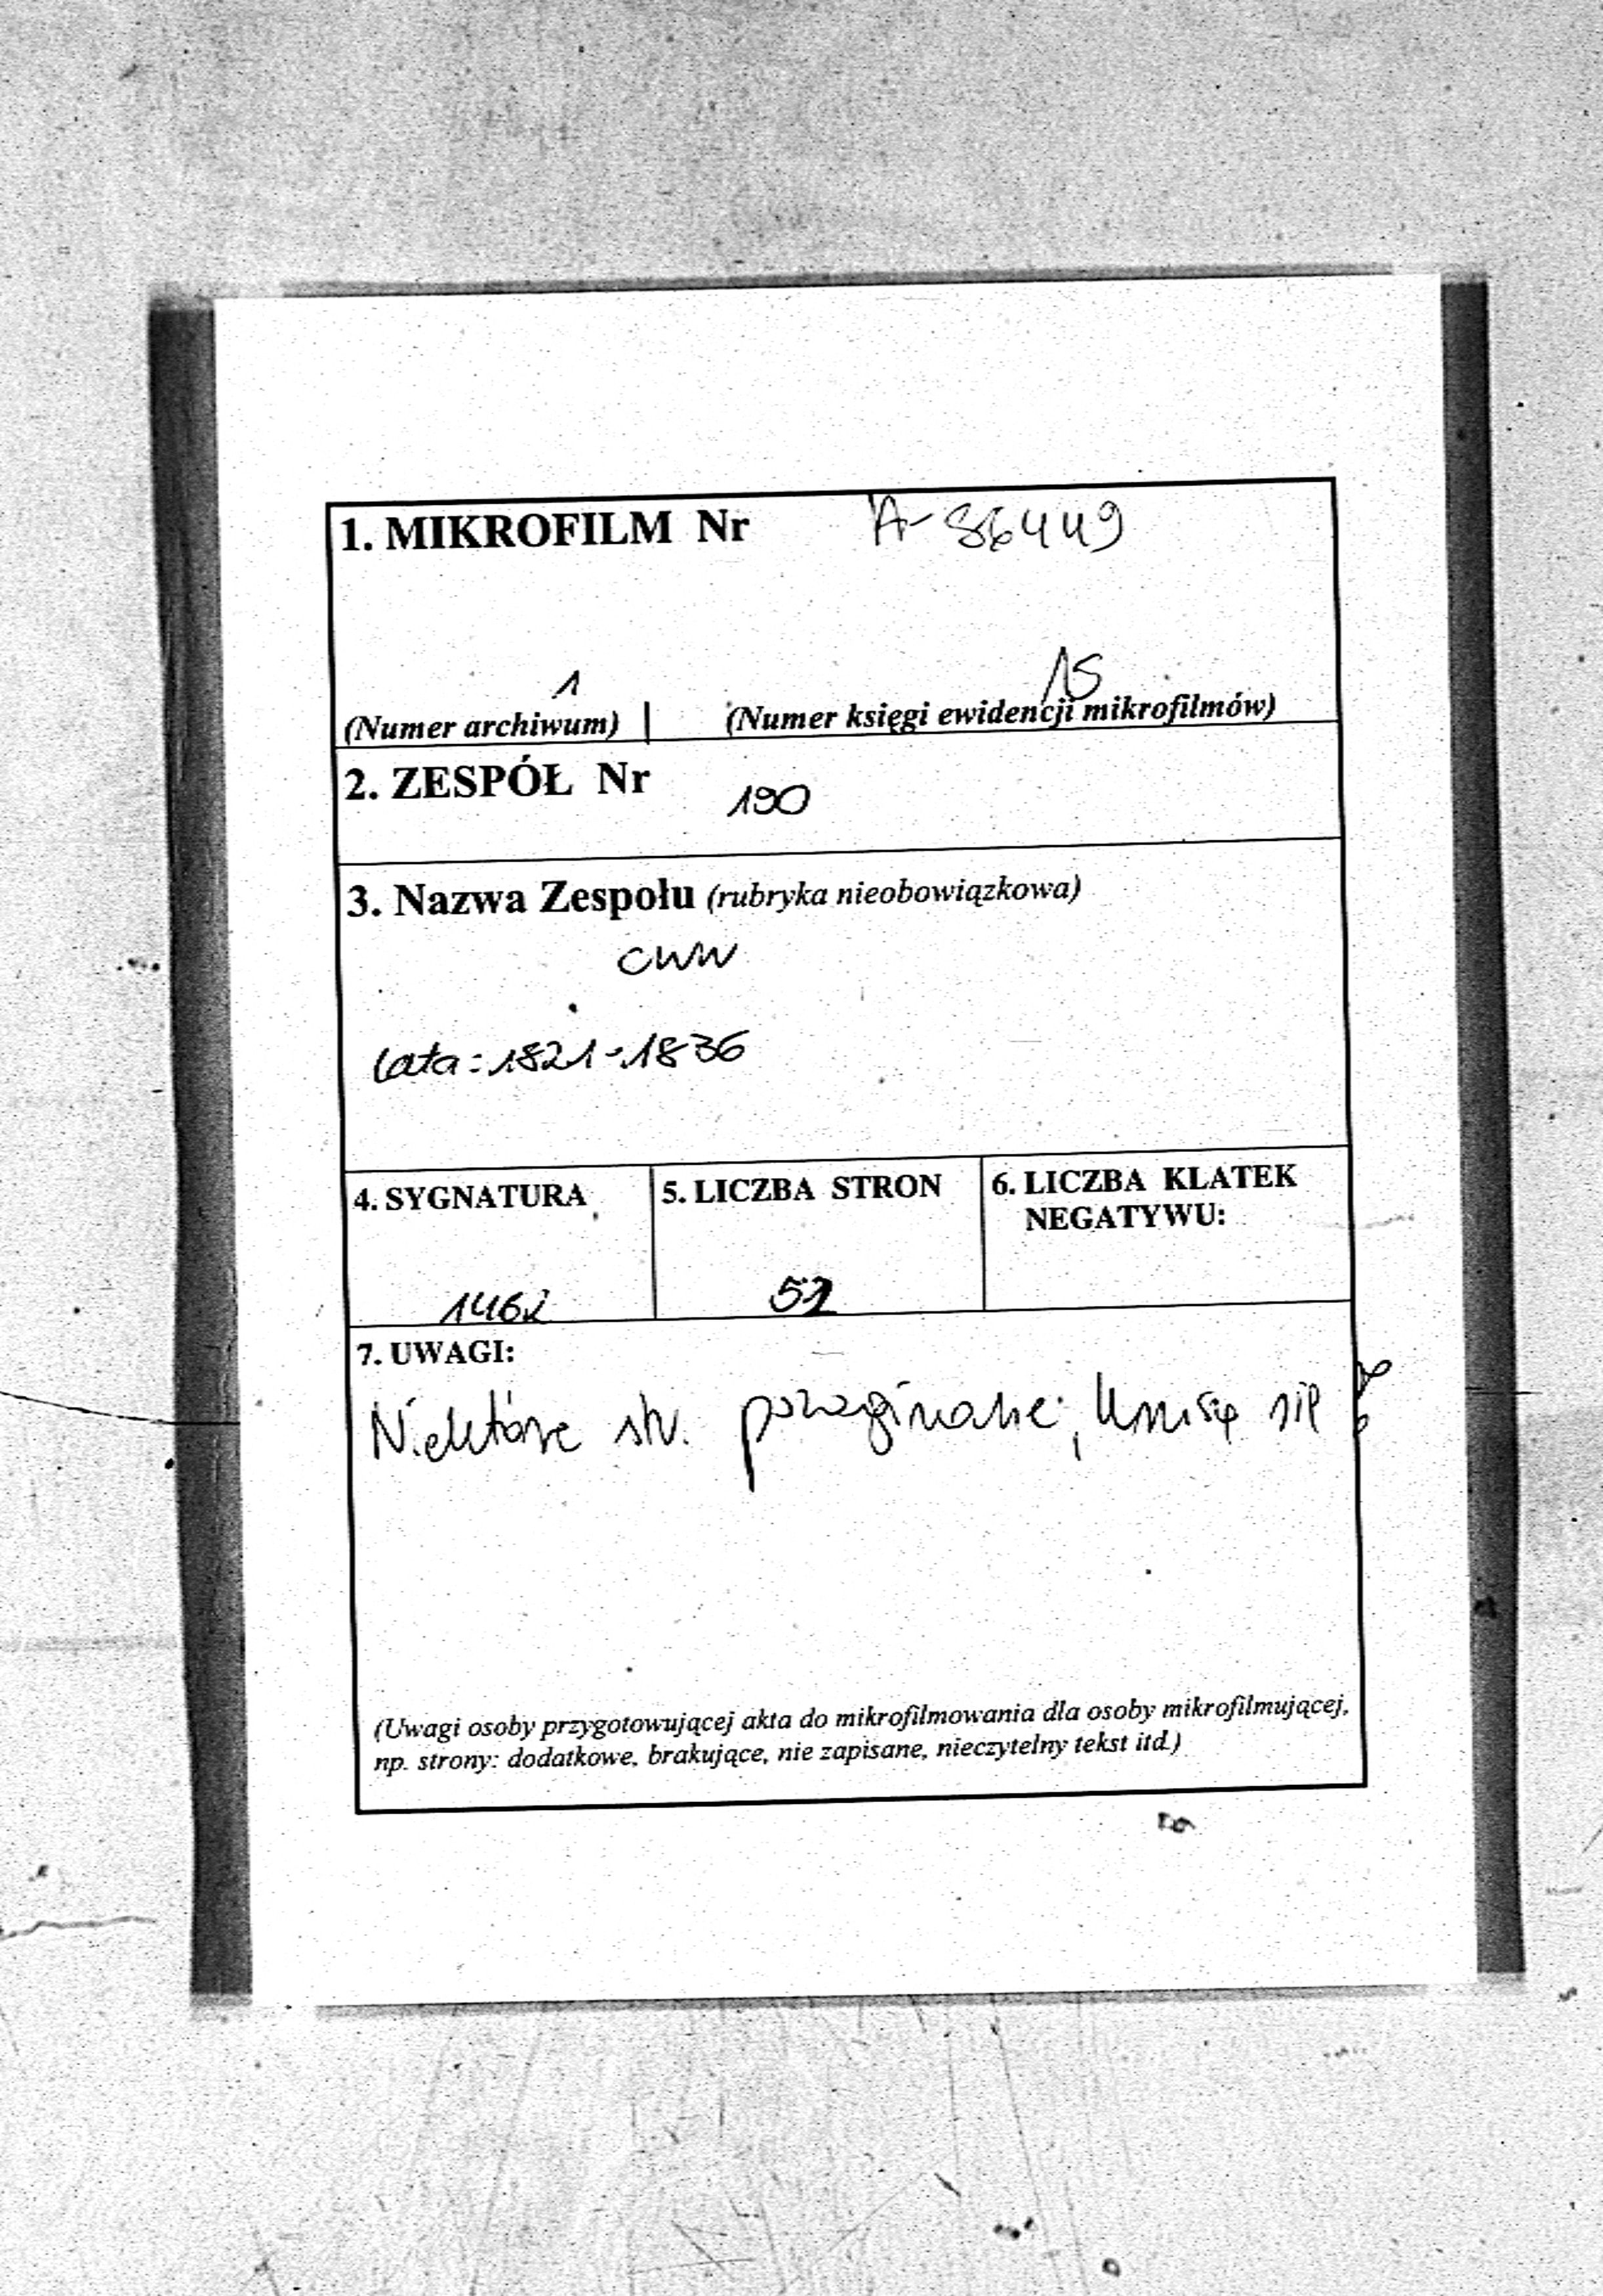 1. MIKROFILM Nr A-86449
1 15
(Numer archiwum) | (Numer księgi ewidencji mikrofilmów)
2. ZESPÓŁ Nr 190
3. Nazwa Zespołu (rubryka nieobowiązkowa)
CWW
Lata: 1821-1836
4. SYGNATURA 5. LICZBA STRON 6. LICZBA KLATEK
NEGATYWU:
1462
7. UWAGI:
Niektóre str.
(Uwagi osoby przygotowującej akta do mikrofilmowania dla osoby mikrofilmującej,
np. strony: dodatkowe, brakujące, nie zapisane, nieczytelny tekst itd.)